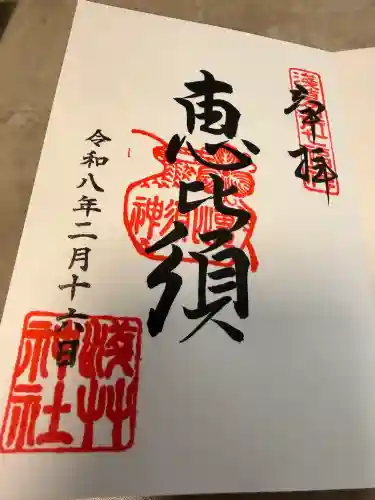 奉拝
恵比須
令和八年二月十六日
浅草
神社